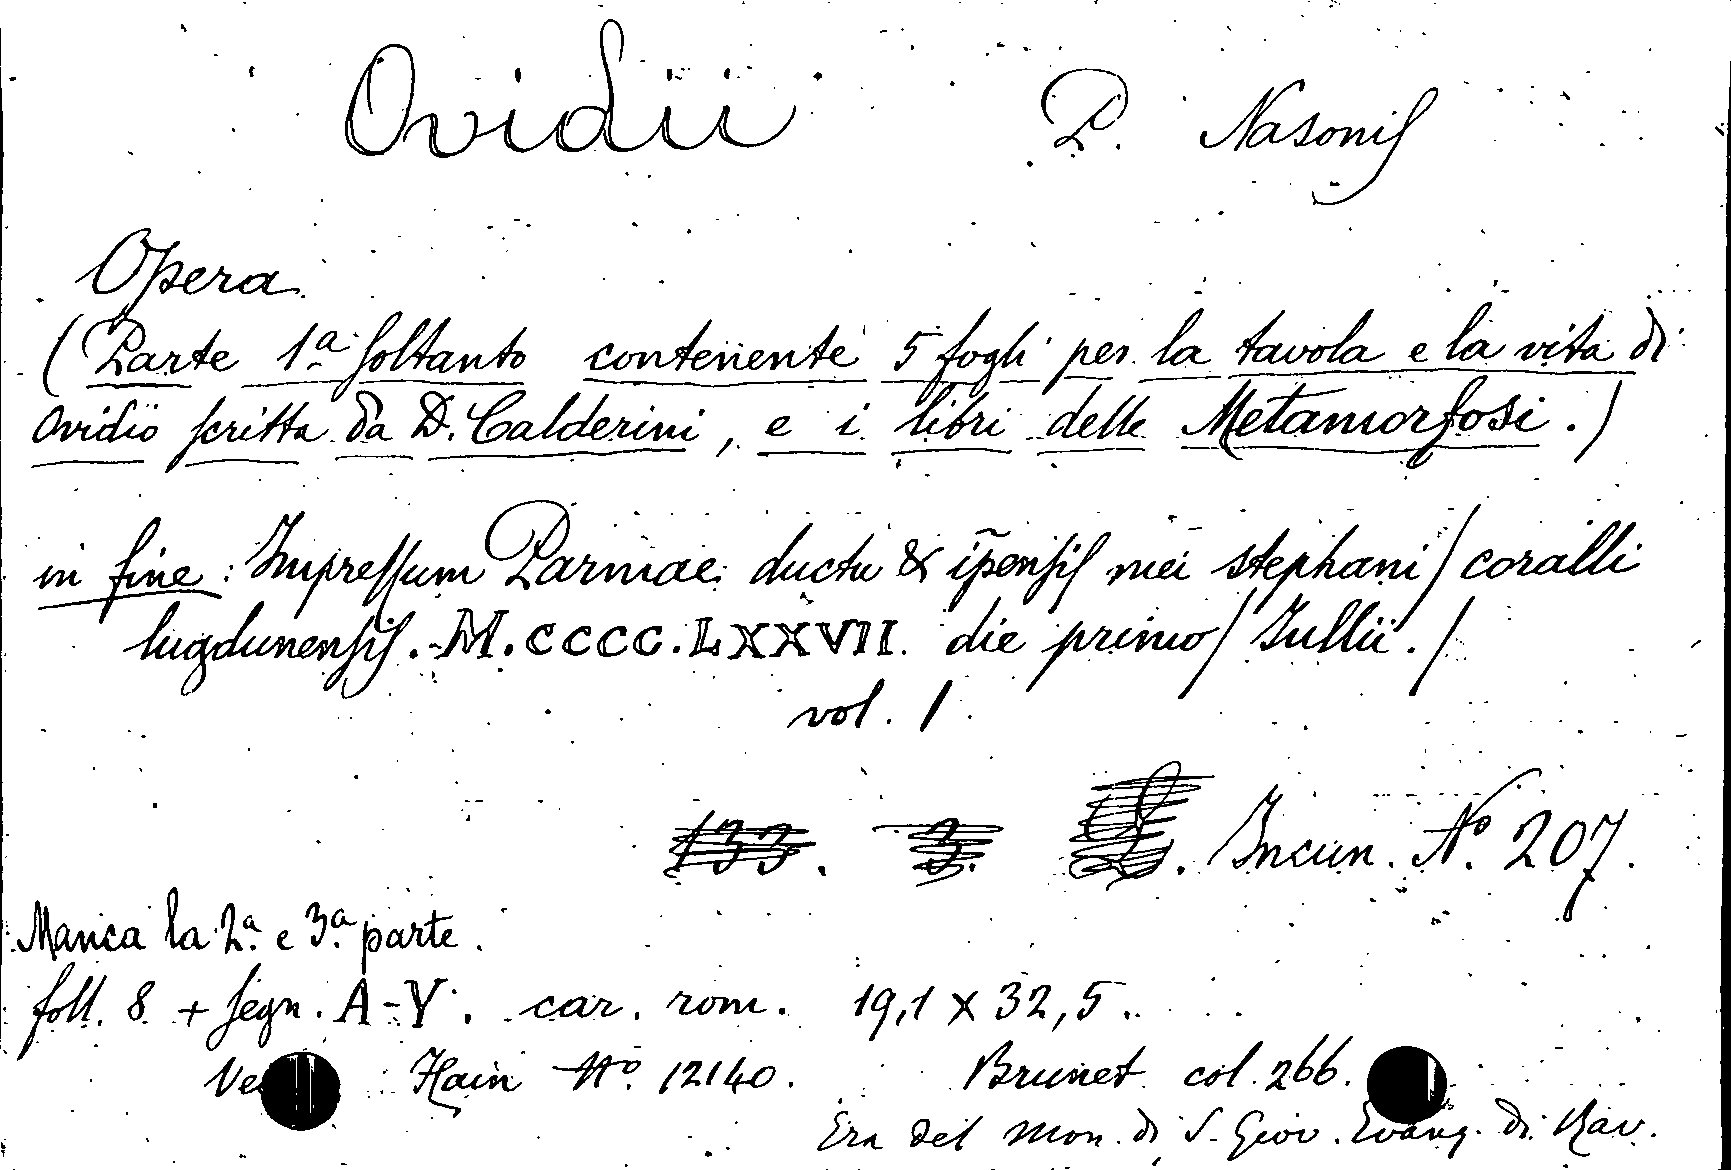 Ovidii P. Nasonis
Opera
(Parte 1ª soltanto contenente 5 fogli per la tavola e la vita di
Ovidio scritta da D. Calderini, e i libri delle Metamorfosi.)
in fine: Impressum Parmae ductu & ĩpensis mei stephani / coralli
lugdunensis. M.CCCC.LXXVII. die primo / Iullii. /
vol. 1
133. 3. Incun. Nº. 207.
Manca la 2ª. e 3ª. parte.
foll. 8 + segn. A-Y. car. rom. 19,1 x 32,5.
Hain Nº. 12140. Brunet col. 266.
Era del Mon. di S. Giov. Evang. di Rav.